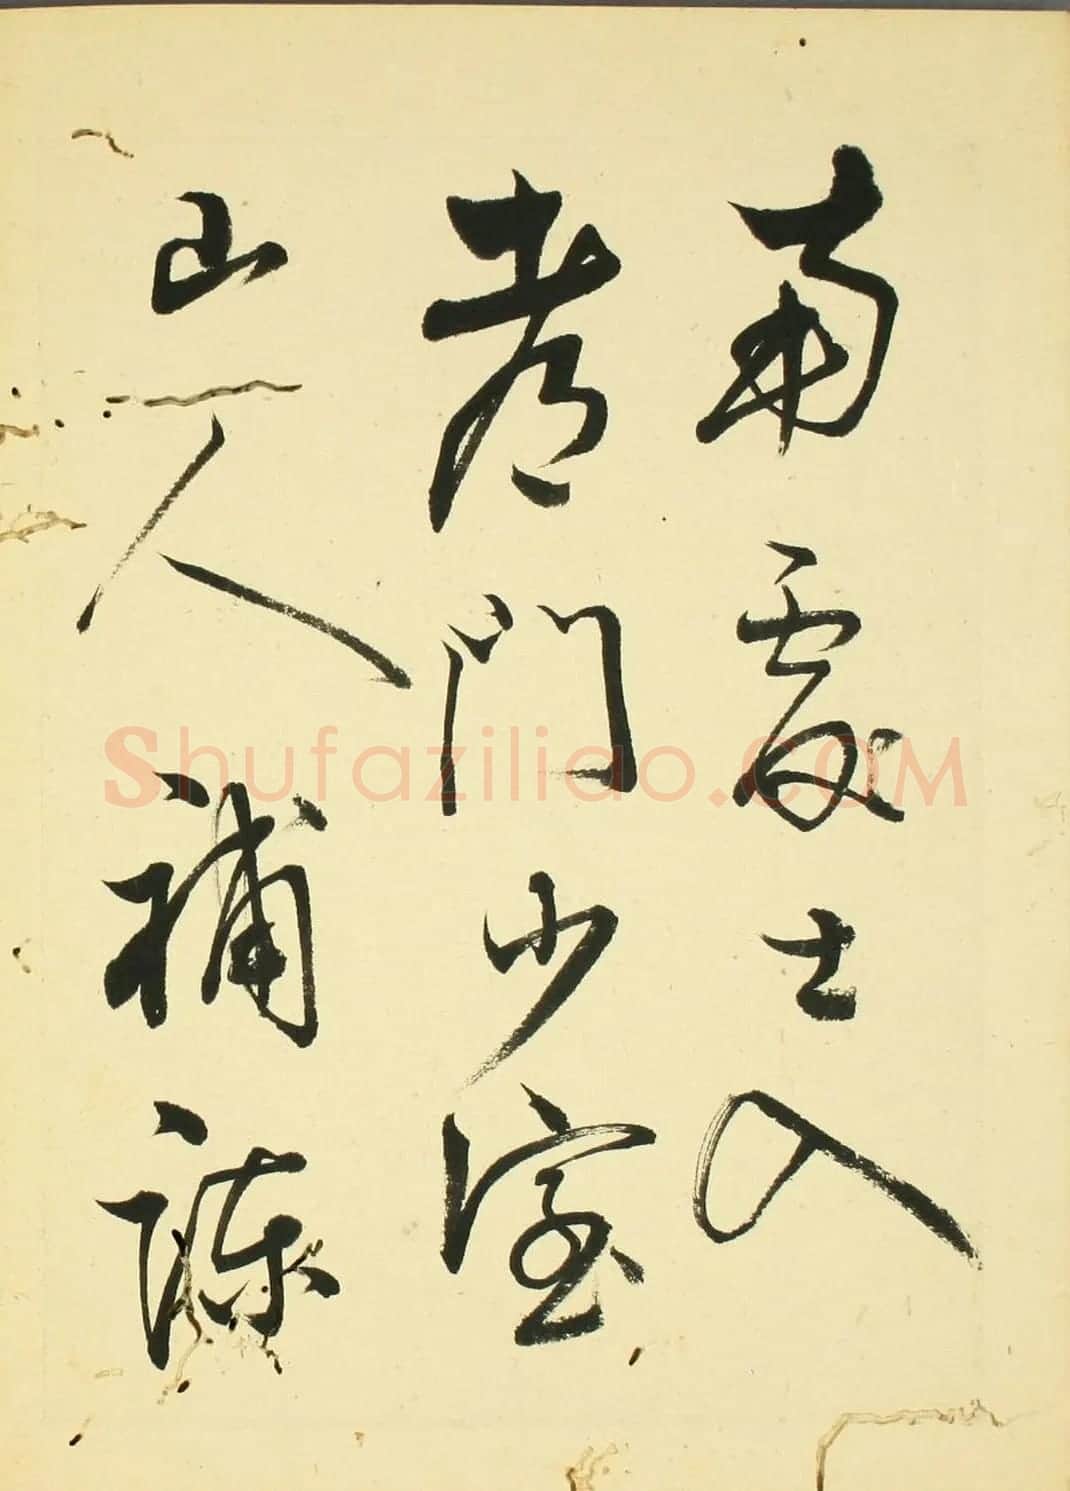 南處士入
門少室
山人補諫
Shufaziliao.COM